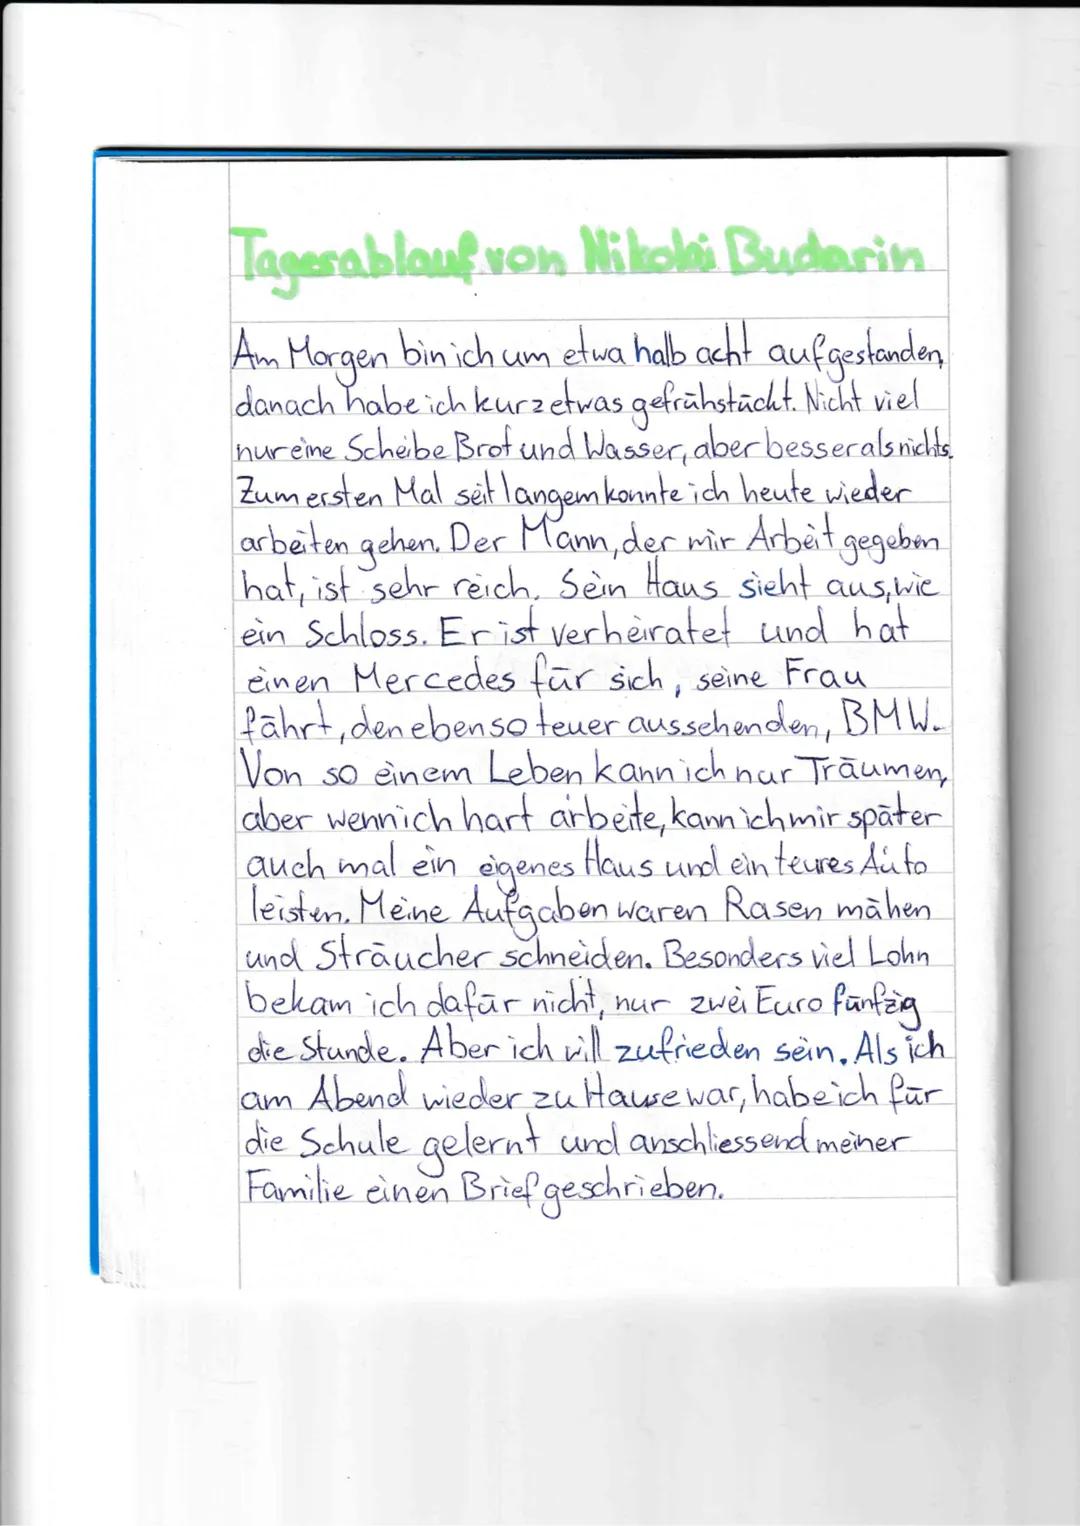 Tagesablauf von Nikolai Budarin
Am Morgen bin ich um etwa halb acht aufgestanden,
danach habe ich kurz etwas gefrühstückt. Nicht viel
nur eine Scheibe Brot und Wasser, aber besser als nichts.
Zum ersten Mal seit langem konnte ich heute wieder
arbeiten gehen. Der Mann, der mir Arbeit gegeben
hat, ist sehr reich. Sein Haus sieht aus, wie
ein Schloss. Er ist verheiratet und hat
einen Mercedes für sich, seine Frau
fährt, den ebenso teuer aussehenden, BMW.
Von so einem Leben kann ich nur Träumen,
aber wenn ich hart arbeite, kann ich mir später
auch mal ein eigenes Haus und ein teures Auto
leisten. Meine Aufgaben waren Rasen mähen
und Sträucher schneiden. Besonders viel Lohn
bekam ich dafür nicht, nur zwei Euro fünfzig
die Stunde. Aber ich will zufrieden sein. Als ich
am Abend wieder zu Hause war, habe ich für
die Schule gelernt und anschliessend meiner
Familie einen Brief geschrieben.